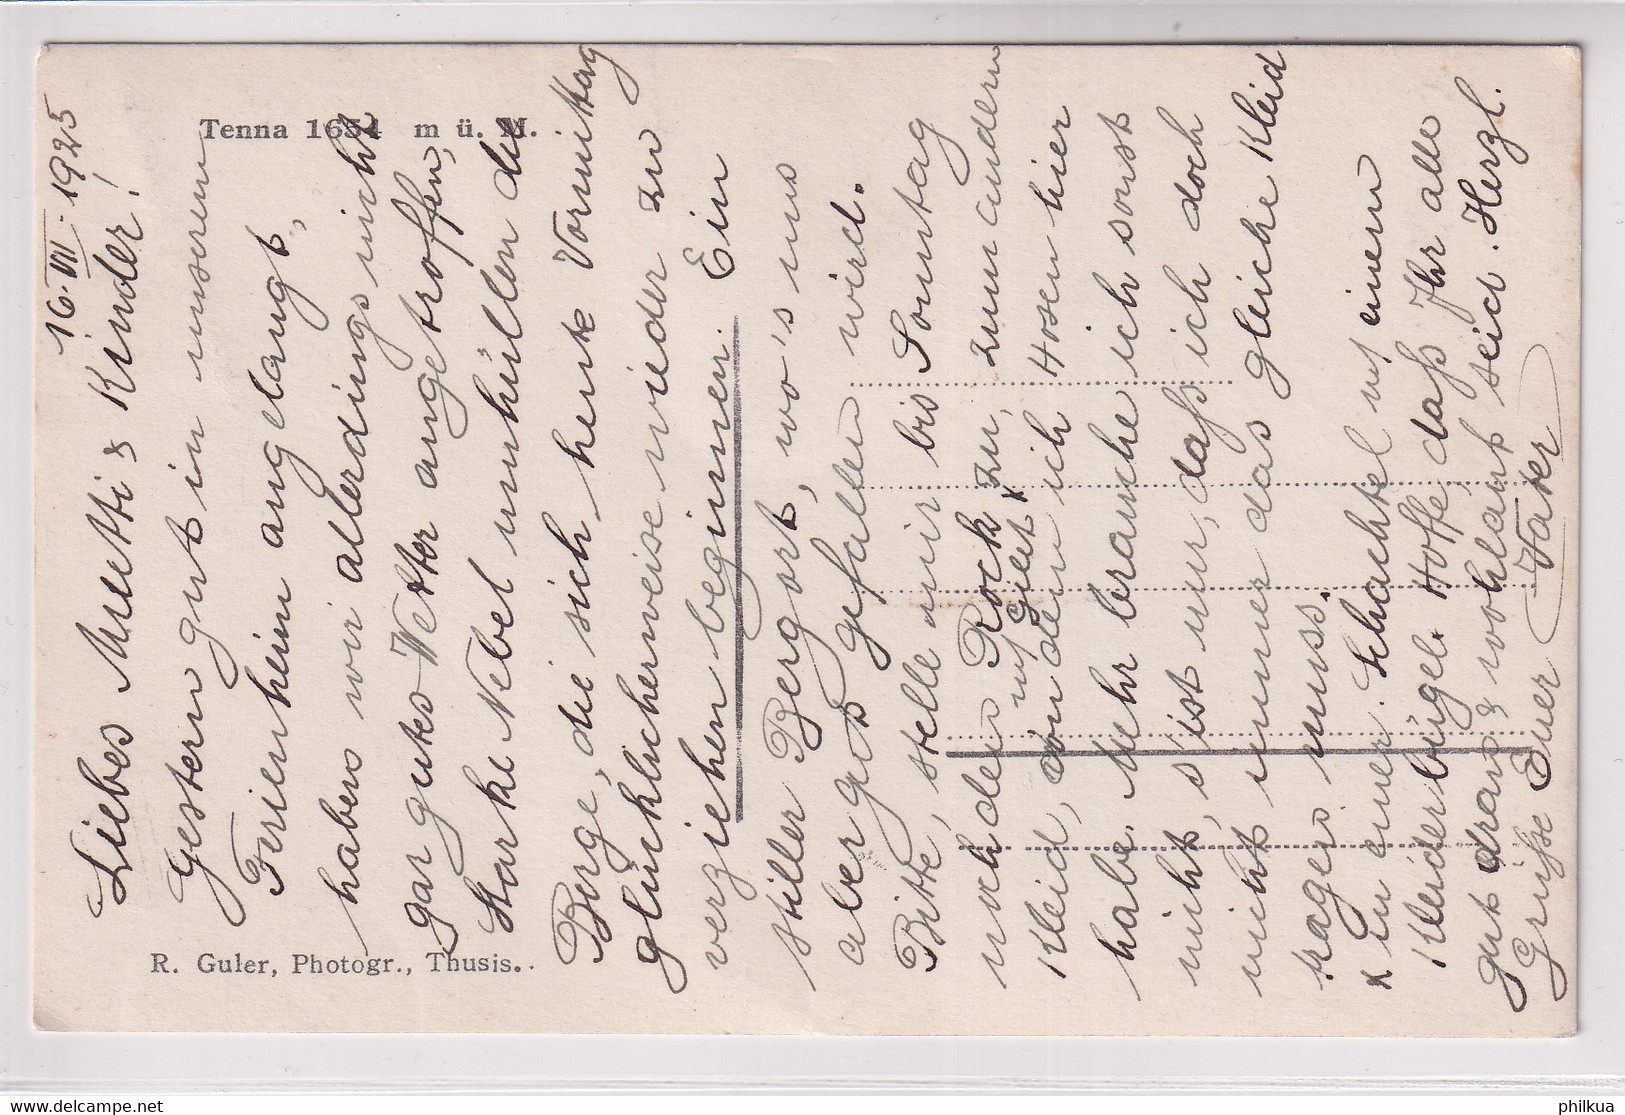 Tenna 1654 m ü. M.
R. Guler, Photogr., Thusis.
16. VII. 1925
Liebes Mutti & Kinder!
Gestern gut in unserem
Ferienheim angelangt,
haben wir allerdings nicht
gar gutes Wetter angetroffen,
Starke Nebel umhüllen die
Berge, die sich heute Vormittag
glücklicherweise wieder zu
verziehen beginnen. Ein
stiller Bergort, wo's uns
aber gut gefallen wird.
Bitte, stelle mir bis Sonntag
noch den Rock zu, zum andern
auf Gest x
Kleid, von dem ich Hosen hier
habe. Mehr brauche ich sonst
nicht, s'ist nur, daß ich doch
nicht immer das gleiche Kleid
tragen muss.
x in einer Schachtel auf einem
Kleiderbügel. Hoffe, daß Ihr alle
gut dran & wohlauf seid. Herzl.
Grüsse Euer Vater
philkua